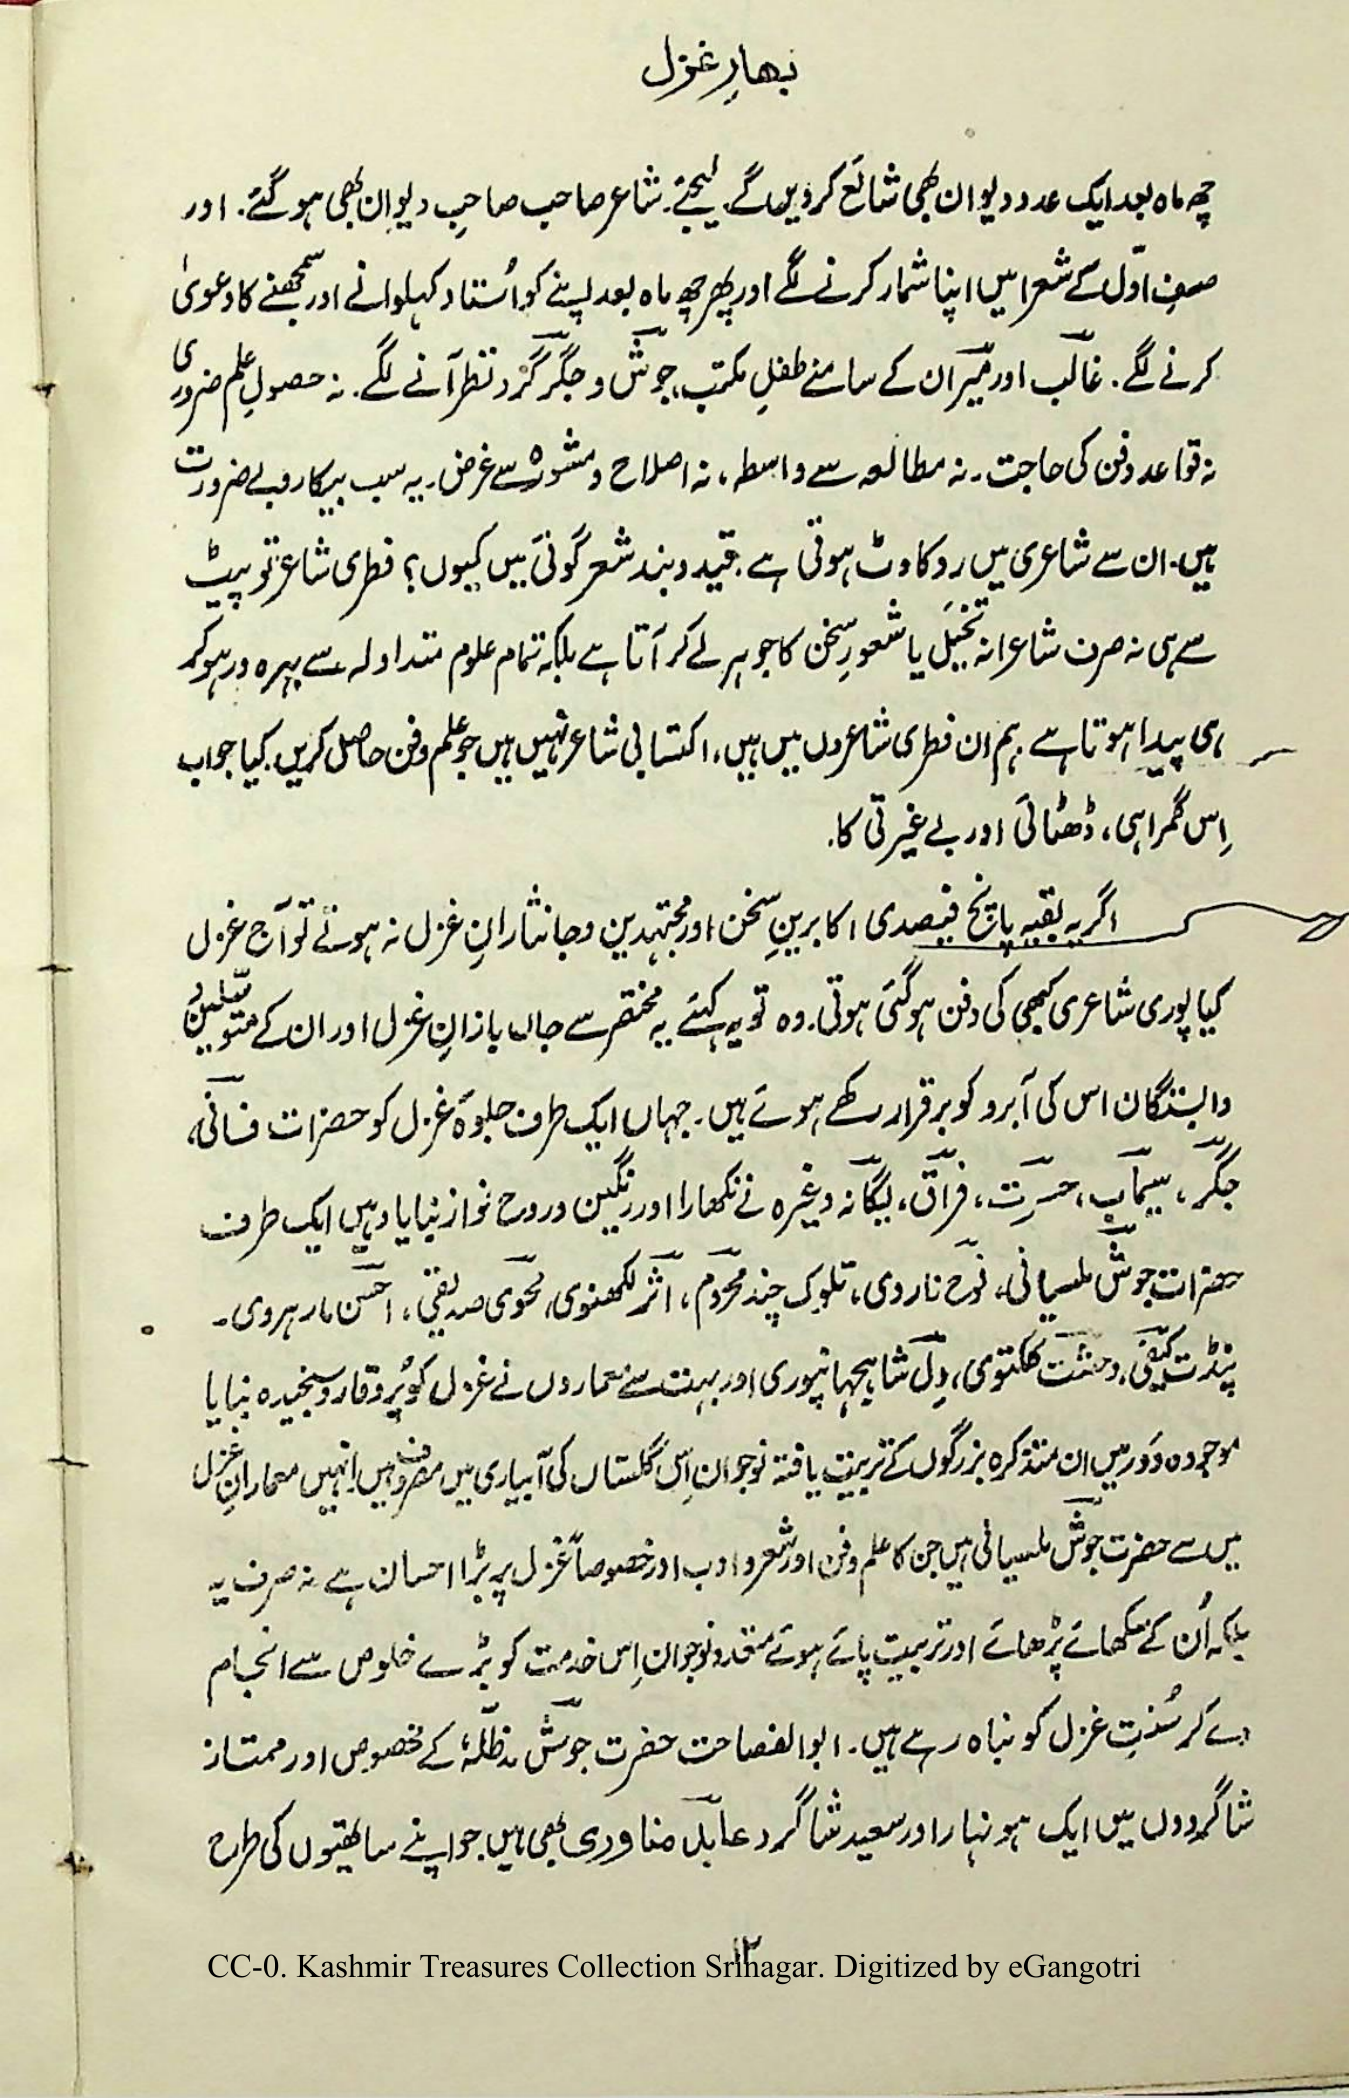 بھارِ غزل
چھ ماہ بعد ایک عدد دیوان بھی شائع کر دیں گے۔ لیجئے۔ شاعر صاحب صاحبِ دیوان بھی ہو گئے۔ اور
صفِ اوّل کے شعرا میں اپنا شمار کرنے لگے اور پھر چھ ماہ بعد اپنے کو اُستاد کہلوانے اور سمجھنے کا دعویٰ
کرنے لگے۔ غالبؔ اور میرؔ ان کے سامنے طفلِ مکتب، جوشؔ و جگرؔ گرد نظر آنے لگے۔ نہ حصولِ علم ضروری
نہ قواعد و فن کی حاجت۔ نہ مطالعہ سے واسطہ، نہ اصلاح و مشورہ سے غرض۔ یہ سب بیکار و بے ضرورت
ہیں۔ ان سے شاعری میں رد کاوٹ ہوتی ہے۔ قید و بند شعر گوئی میں کیوں؟ فطری شاعر تو پیٹ
سے ہی نہ صرف شاعرانہ تخیّل یا شعورِ سخن کا جوہر لے کر آتا ہے بلکہ تمام علوم متداولہ سے بہرہ ور ہو کر
ہی پیدا ہوتا ہے۔ ہم ان فطری شاعروں میں ہیں، اکتسابی شاعر نہیں ہیں جو علم و فن حاصل کریں۔ کیا جواب
اِس گمراہی، ڈھٹائی اور بے غیرتی کا۔
اگر یہ بقیہ پانچ فیصدی اکابرینِ سخن اور مجتہدین و جانثارانِ غزل نہ ہوتے تو آج غزل
کیا پوری شاعری کبھی کی دفن ہو گئی ہوتی۔ وہ تو یہ کہئے یہ مختصر سے جاں بازانِ غزل اور ان کے متوسّلین و
وابستگان اس کی آبرو کو برقرار رکھے ہوئے ہیں۔ جہاں ایک طرف جلوۂ غزل کو حضرات فانیؔ،
جگرؔ، سیمابؔ، حسرتؔ، فراقؔ، یگانہؔ وغیرہ نے نکھارا اور رنگین و روح نواز بنایا وہیں ایک طرف
حضرات جوشؔ ملسیانی، نوحؔ ناروی، تلوک چند محرومؔ، اثرؔ لکھنوی، محویؔ صدیقی، احسنؔ مارہروی۔
پنڈت کیفیؔ، وحشتؔ کلکتوی، دلؔ شاہجہانپوری اور بہت سے معماروں نے غزل کو پُر وقار و سنجیدہ بنایا
موجودہ دَور میں ان متذکرہ بزرگوں کے تربیت یافتہ نوجوان اِس گلستاں کی آبیاری میں مصروف ہیں۔ انہیں معمارانِ غزل
میں سے حضرت جوشؔ ملسیانی ہیں جن کا علم و فن اور شعر و ادب اور خصوصاً غزل پر بڑا احسان ہے نہ صرف یہ
بلکہ اُن کے سکھائے پڑھائے اور تربیت پائے ہوئے متعدد نوجوان اِس خدمت کو بڑے خلوص سے انجام
دے کر سُنتِ غزل کو نباہ رہے ہیں۔ ابوالفصاحت حضرت جوشؔ مدظلّہٗ کے مخصوص اور ممتاز
شاگردوں میں ایک ہونہار اور سعید شاگرد عابدؔ مناوری بھی ہیں جو اپنے ساتھیوں کی طرح
۱۲
CC-0. Kashmir Treasures Collection Srinagar. Digitized by eGangotri